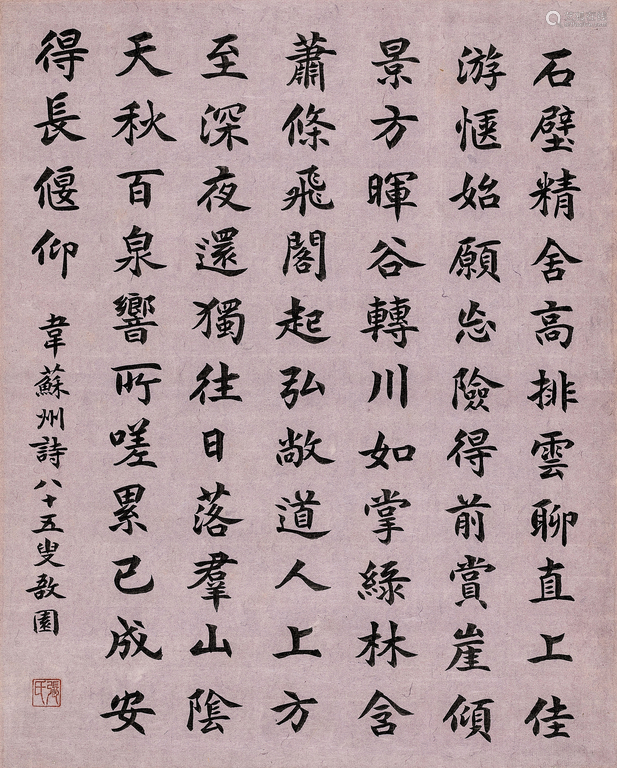 石壁精舍高排雲聊直上佳
游愜始願忘險得前賞崖傾
景方晦谷轉川如掌綠林含
蕭條飛閣起弘敞道人上方
至深夜還獨往日落羣山陰
天秋百泉響所嗟累已成安
得長偃仰
韋蘇州詩八十五叟敬園
張氏